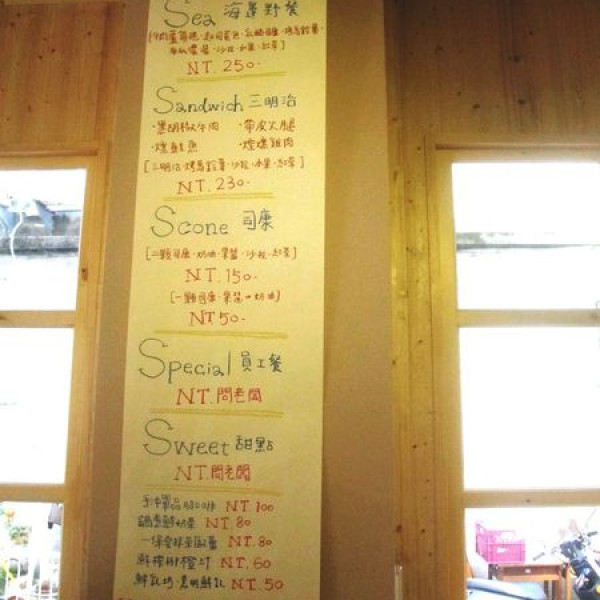 Sea 海邊野餐
NT. 250-
Sandwich 三明治
·黑胡椒牛肉 ·帶皮火腿
·燻鮭魚 ·煙燻雞肉
[三明治·烤馬鈴薯·沙拉·水果·紅茶]
NT. 230-
Scone 司康
[二顆司康·奶油·果醬·沙拉·紅茶]
NT. 150-
[一顆司康·果醬 奶油]
NT 50-
Special 員工餐
NT. 問老闆
Sweet 甜點
NT. 問老闆
NT. 100
鍋煮鮮奶茶 NT. 80
NT. 80
鮮榨柳橙汁 NT. 60
NT. 50